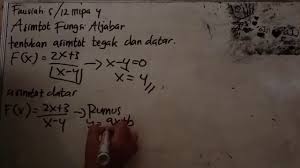 Fauziah S /12 mipa 4
Asimtot Fungsi Aljabar
tentukan asimtot tegak dan datar.
F(x) = 2x+3 / x-4 → x-4=0
x = 4 //
asimtot datar
F(x) = 2x+3 / x-4 → Rumus
y = ax+b